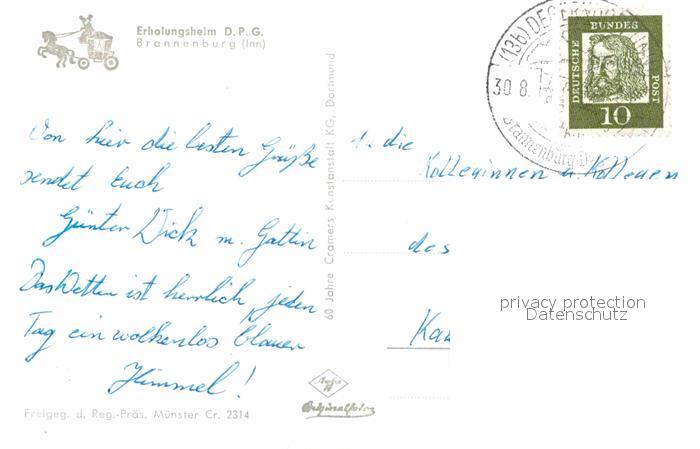 Erholungsheim D.P.G.
Brannenburg (Inn)
(13b) DEGERNDORF
30.8.
Brannenburg-D
DEUTSCHE BUNDES POST
10
Von hier die besten Grüße
sendet Euch
Günter Dick m. Gattin
Das Wetter ist herrlich, jeden
Tag ein wolkenlos blauer
Himmel!
Freigeg. d. Reg.-Präs. Münster Cr. 2314
60 Jahre Cramers Kunstanstalt KG, Dortmund
Originalfoto
A. die
Kolleginnen u. Kollegen
des
Kau
privacy protection
Datenschutz